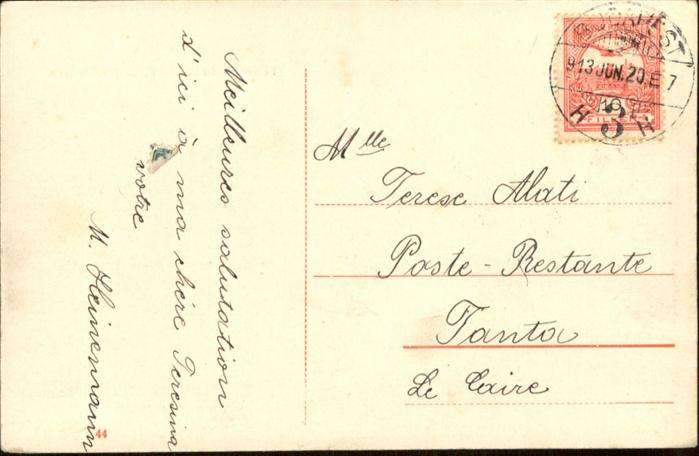 Meilleures salutation
d'ici à ma chère Teresina
votre
M. Heinemann
44
BUDAPEST
913 JUN. 20. E 7
H 3 H
10
Mlle
Terese Alati
Poste-Restante
Tanta
Le Caire